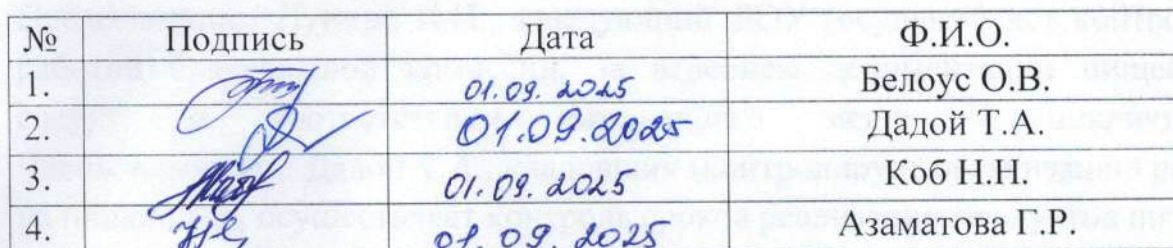 № Подпись Дата Ф.И.О.
1. 01.09.2025 Белоус О.В.
2. 01.09.2025 Дадой Т.А.
3. 01.09.2025 Коб Н.Н.
4. 01.09.2025 Азаматова Г.Р.